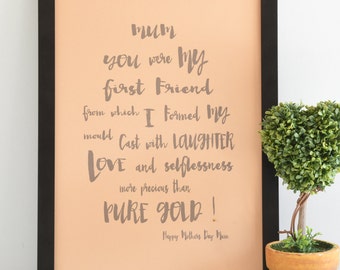 MUM
you were MY
first Friend
from which I Formed MY
mould Cast with LAUGHTER
LOVE and selflessness
more precious than
PURE GOLD !
Happy Mothers Day Mum